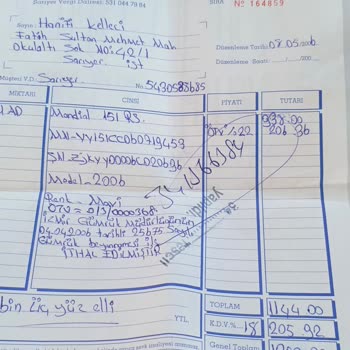 Sarıyer Vergi Dairesi: 531 044 79 04
Nº 164859
Sayın: Hanifi Keleci
Fatih Sultan Mehmet Mah
Okulaltı Sok NO:42/1
Sarıyer İst
Düzenleme Tarihi: 08.05.2006
Düzenleme Saati: / /200
Müşteri V.D. Sarıyer No: 5430583635
MİKTARI CİNSİ FİYATI TUTARI
AD Mondial 151 RS. 938.00
ÖTV %22 206 36
MN-VY151CC0B0719459
Model-2006
Renk-Mavi
İzmir Gümrük Müdürlüğünün
04.04.2006 tarihli 25675 Sayılı
Gümrük beyannamesi ile
İTHAL EDİLMİŞTİR
bin üç yüz elli
YTL.
TOPLAM 1144 00
K.D.V.% 18 205 92
Genel Toplam